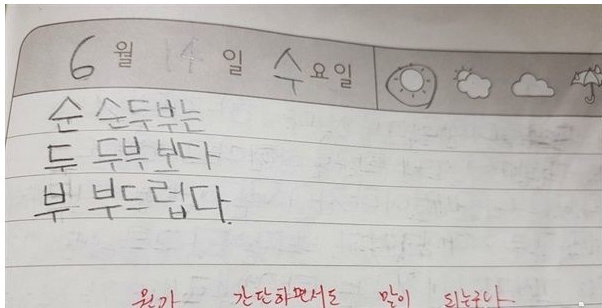 6월 14일 수요일
순 순두부는
두 두부보다
부 부드럽다.
뭔가 간단하면서도 말이 되는구나